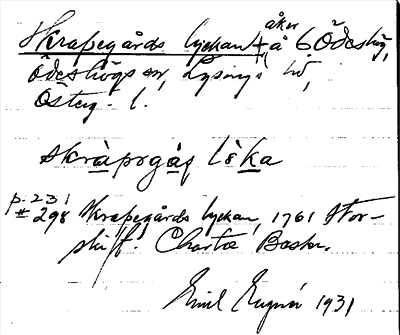 Skrapegårds lyckan, åker å 6 Ödeshög,
Ödeshögs sn, Lysings hd,
Österg. l.
skràpəgàs lèka
p. 231
# 298 Skrapegårds lyckan, 1761 Stor-
skift. Charta Beskr.
Emil 1931